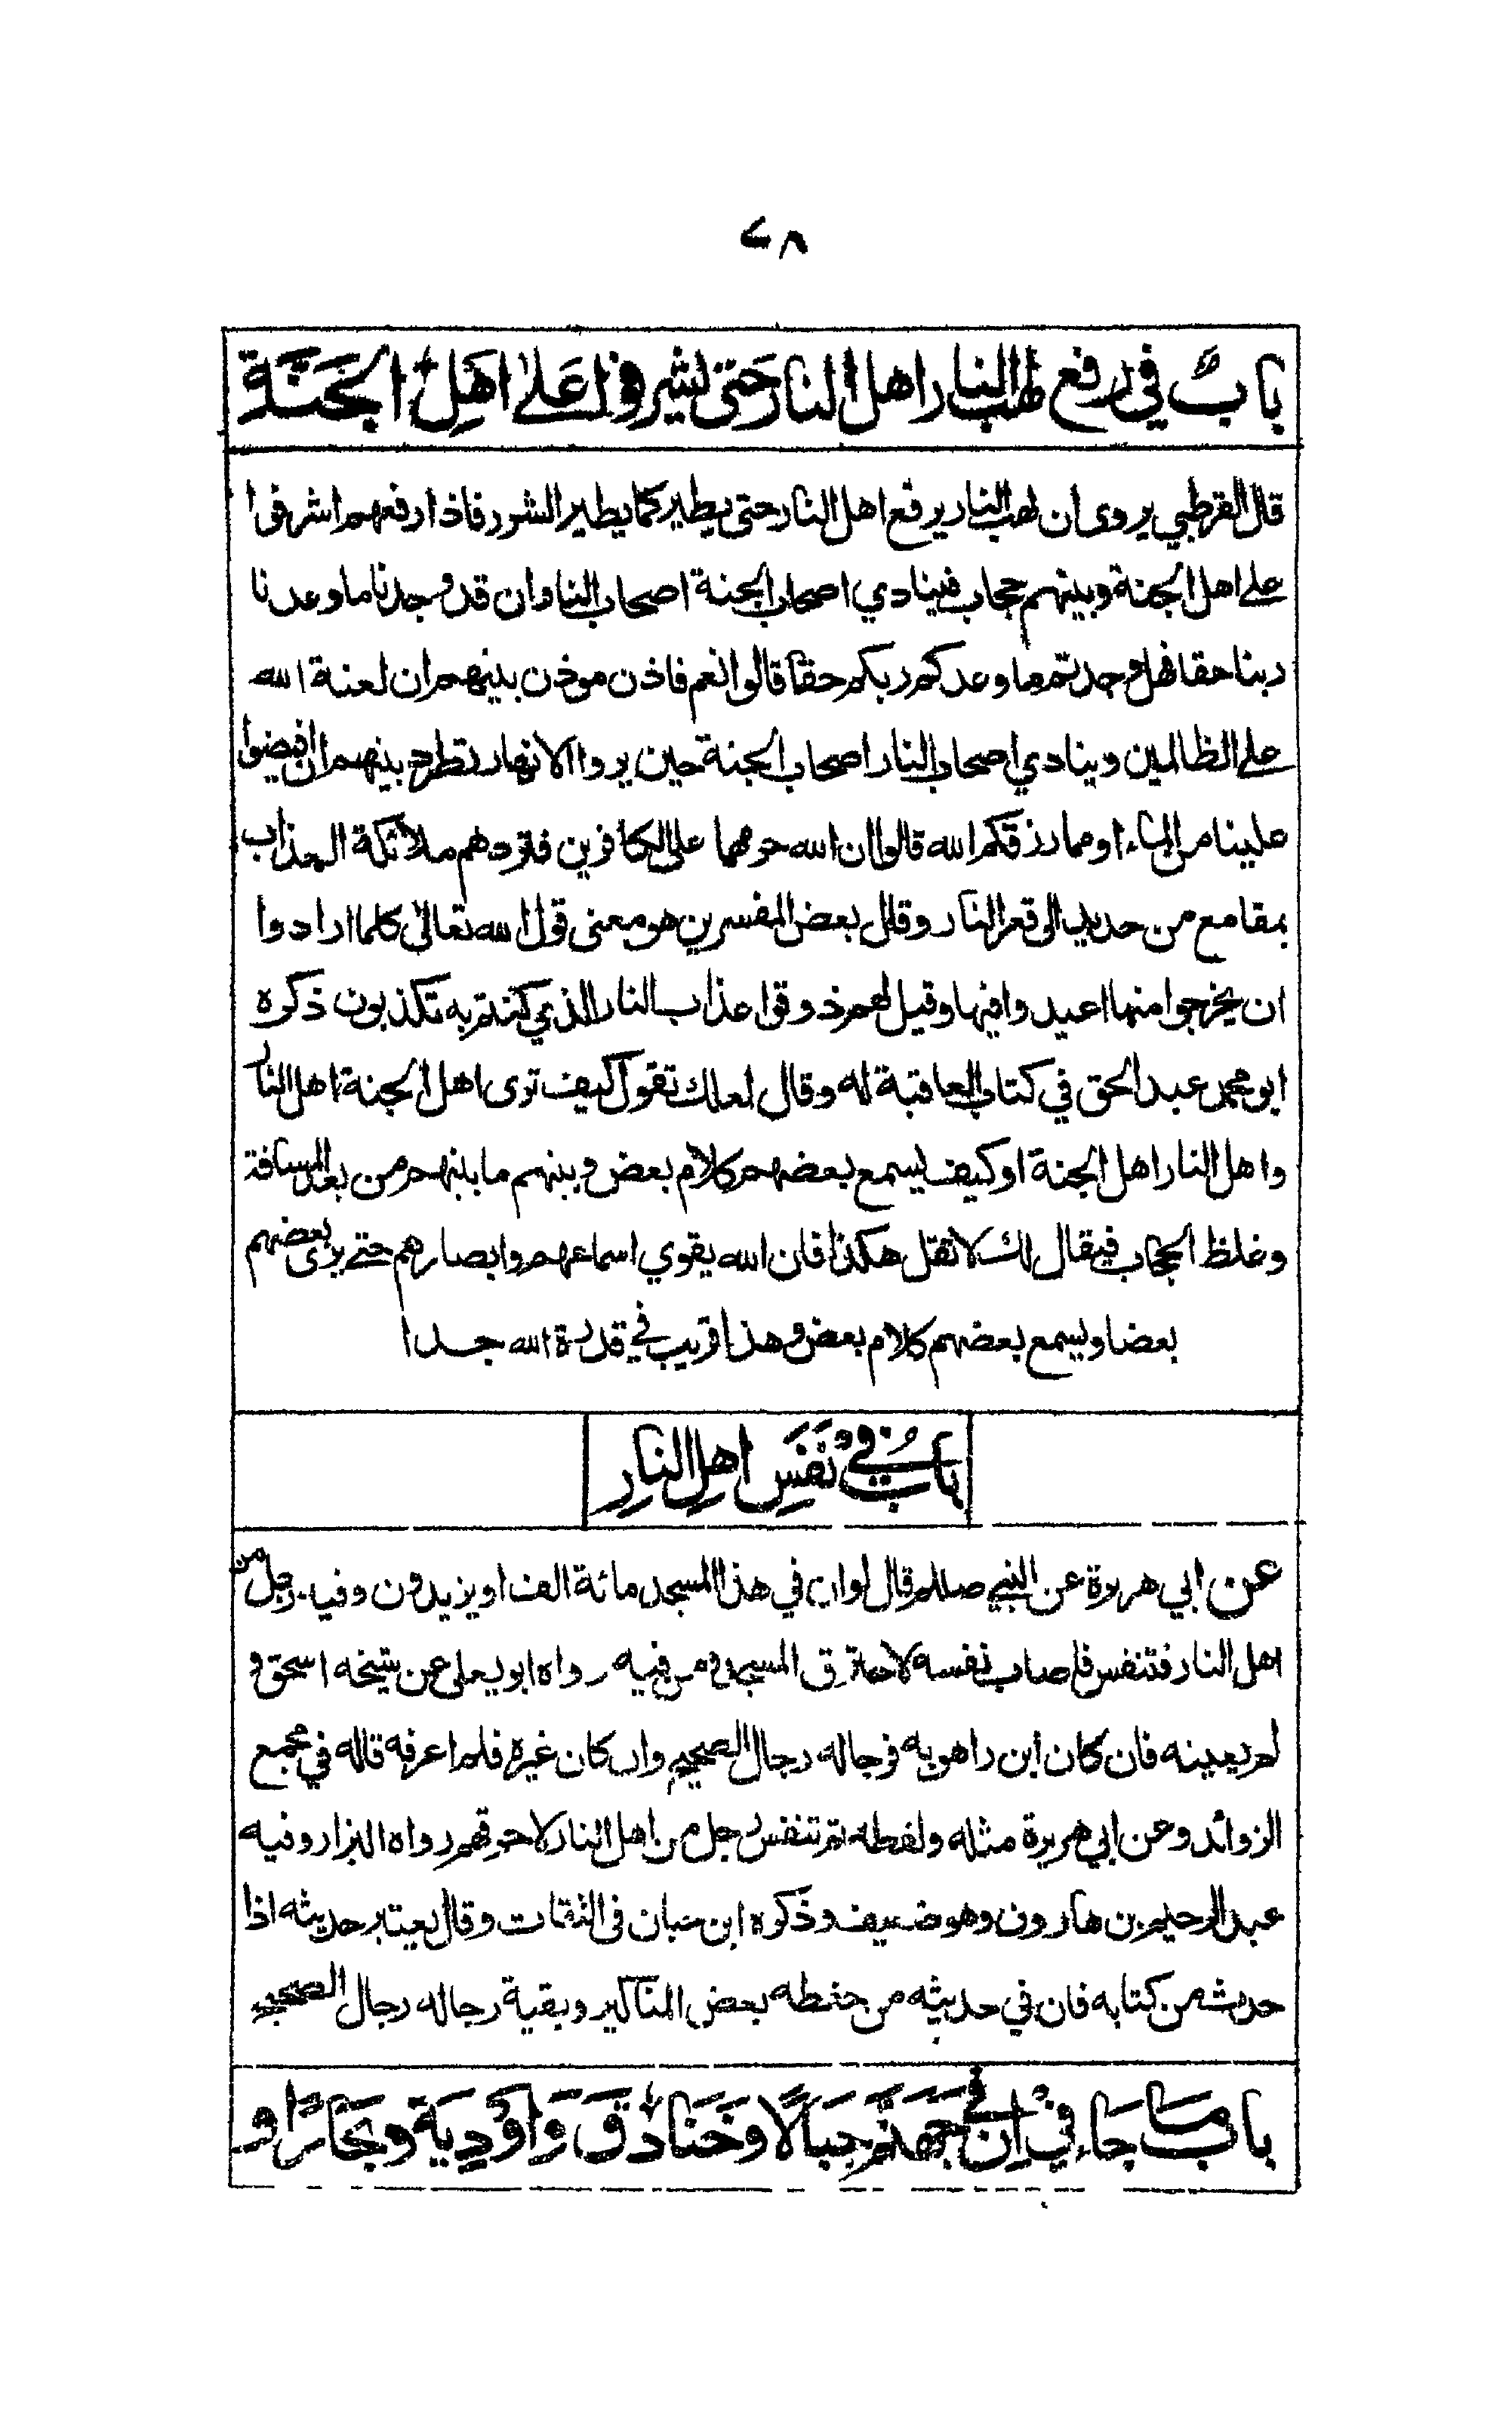 ٤٨
بابٌ في رفع لهب النار اهل النار حَتى ليشرفوا عَلىٰ اهل الجَنَّة
قال القرطبي يروى ان لهب النار يرفع اهل النار حتى يطير كما يطير الشرر فاذا رفعهم اشرفوا
على اهل الجنة وبينهم حجاب فينادي اصحاب الجنة اصحاب النار ان قد وجدنا ما وعدنا
ربنا حقا فهل وجدتم ما وعدكم ربكم حقا قالوا نعم فاذن موذن بينهم ان لعنة الله
على الظالمين وينادي اصحاب النار اصحاب الجنة حين يروا الانهار تطرد بينهم ان افيضوا
علينا من الماء او مما رزقكم الله قالوا ان الله حرمهما على الكافرين فتردهم ملائكة العذاب
بمقامع من حديد الى قعر النار وقال بعض المفسرين هو معنى قول الله تعالى كلما ارادوا
ان يخرجوا منها اعيدوا فيها وقيل لهم ذوقوا عذاب النار الذي كنتم به تكذبون ذكره
ابو محمد عبد الحق في كتاب العاقبة له وقال لعلك تقول كيف ترى اهل الجنة اهل النار
واهل النار اهل الجنة او كيف يسمع بعضهم كلام بعض وبينهم ما بينهم من بعد المسافة
وغلظ الحجاب فيقال لك لا تقل هكذا فان الله يقوي اسماعهم وابصارهم حتى يرى بعضهم
بعضا ويسمع بعضهم كلام بعض وهذا قريب في قدرة الله جدا
بابُ في نَفَسِ اهلِ النارِ
عن ابي هريرة عن النبي صللم قال لو ان في هذا المسجد مائة الف او يزيدون وفيه رجل من
اهل النار فتنفس فاصاب نفسه لاحترق المسجد ومن فيه رواه ابو يعلى عن شيخه اسحق و
لم يعينه فان كان ابن راهويه فرجاله رجال الصحيح وان كان غيره فلم اعرفه قاله في مجمع
الزوائد وعن ابي هريرة مثله ولفظه ثم تنفس رجل من اهل النار لاحرقهم رواه البزار وفيه
عبد الرحيم بن هارون وهو ضعيف وذكره ابن حبان في الثقات وقال يعتبر حديثه اذا
حدث من كتابه فان في حديثه من حفظه بعض المناكير وبقية رجاله رجال الصحيح
باب مَا جَاء في ان في جَهنّم جبَالًا وخَنَادقَ وَاوْدِيَة وبحَارًا و